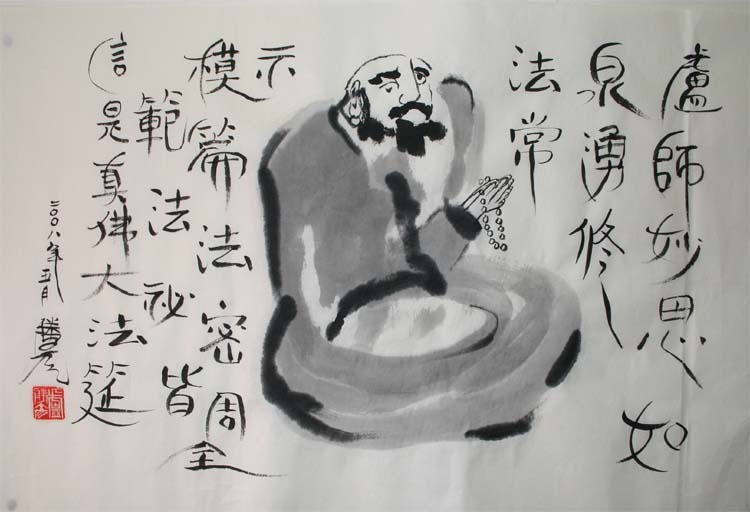 盧師妙思如
泉湧修
法常
示
模篇法密周全
範法祕皆
信是真佛大法筵
二〇〇八年五月
勝彥